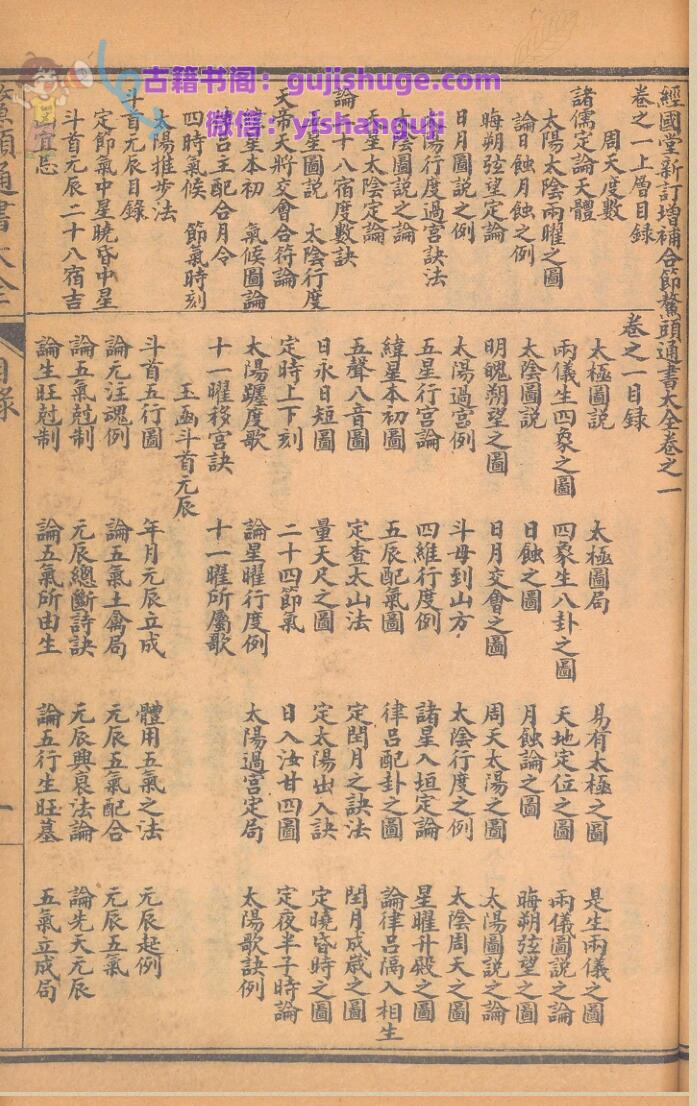 經國堂新訂增補合節鰲頭通書大全卷之一
卷之一上層目錄
周天度數
諸儒定論天體
太陽太陰兩曜之圖
論日蝕月蝕之例
晦朔弦望定論
日月圖說之例
太陽行度過宮訣法
太陰圖說之論
天生太陰定論
論
十八宿度數訣
五星圖說 太陰行度
天帝天將交會合符論
星本初 氣候圖論
呂主配合月令
四時氣候 節氣時刻
太陽推步法
斗首元辰目錄
定節氣中星曉昏中星
斗首元辰二十八宿吉
宜忌
卷之一目錄
太極圖說 太極圖局 易有太極之圖 是生兩儀之圖
兩儀生四象之圖 四象生八卦之圖 天地定位之圖 兩儀圖說之論
太陰圖說 日蝕之圖 月蝕論之圖 晦朔弦望之圖
明魄朔望之圖 日月交會之圖 周天太陽之圖 太陽圖說之論
太陽過宮例 斗母到山方 太陰行度之例 太陰周天之圖
五星行宮論 四維行度例 諸星入垣定論 星曜升殿之圖
緯星本初圖 五辰配氣圖 律呂配卦之圖 論律呂隔入相生
五聲八音圖 定查太山法 定閏月之訣法 閏月成歲之圖
日永日短圖 量天尺之圖 定太陽出入訣 定曉昏時之圖
定時上下刻 二十四節氣 日入汝甘四圖 定夜半子時論
太陽躔度歌 論星曜行度例 太陽過宮定局 太陽歌訣例
十一曜移宮訣 十一曜所屬歌
玉函斗首元辰
斗首五行圖 年月元辰立成 體用五氣之法 元辰起例
論元注魂例 論五氣土禽局 元辰五氣配合 元辰五氣
論五氣尅制 元辰總斷詩訣 元辰興衰法論 論先天元辰
論生旺尅制 論五氣所由生 論五行生旺墓 五氣立成局
鰲頭通書大全
目錄
一
古籍书阁：gujishuge.com
微信：yishanguji